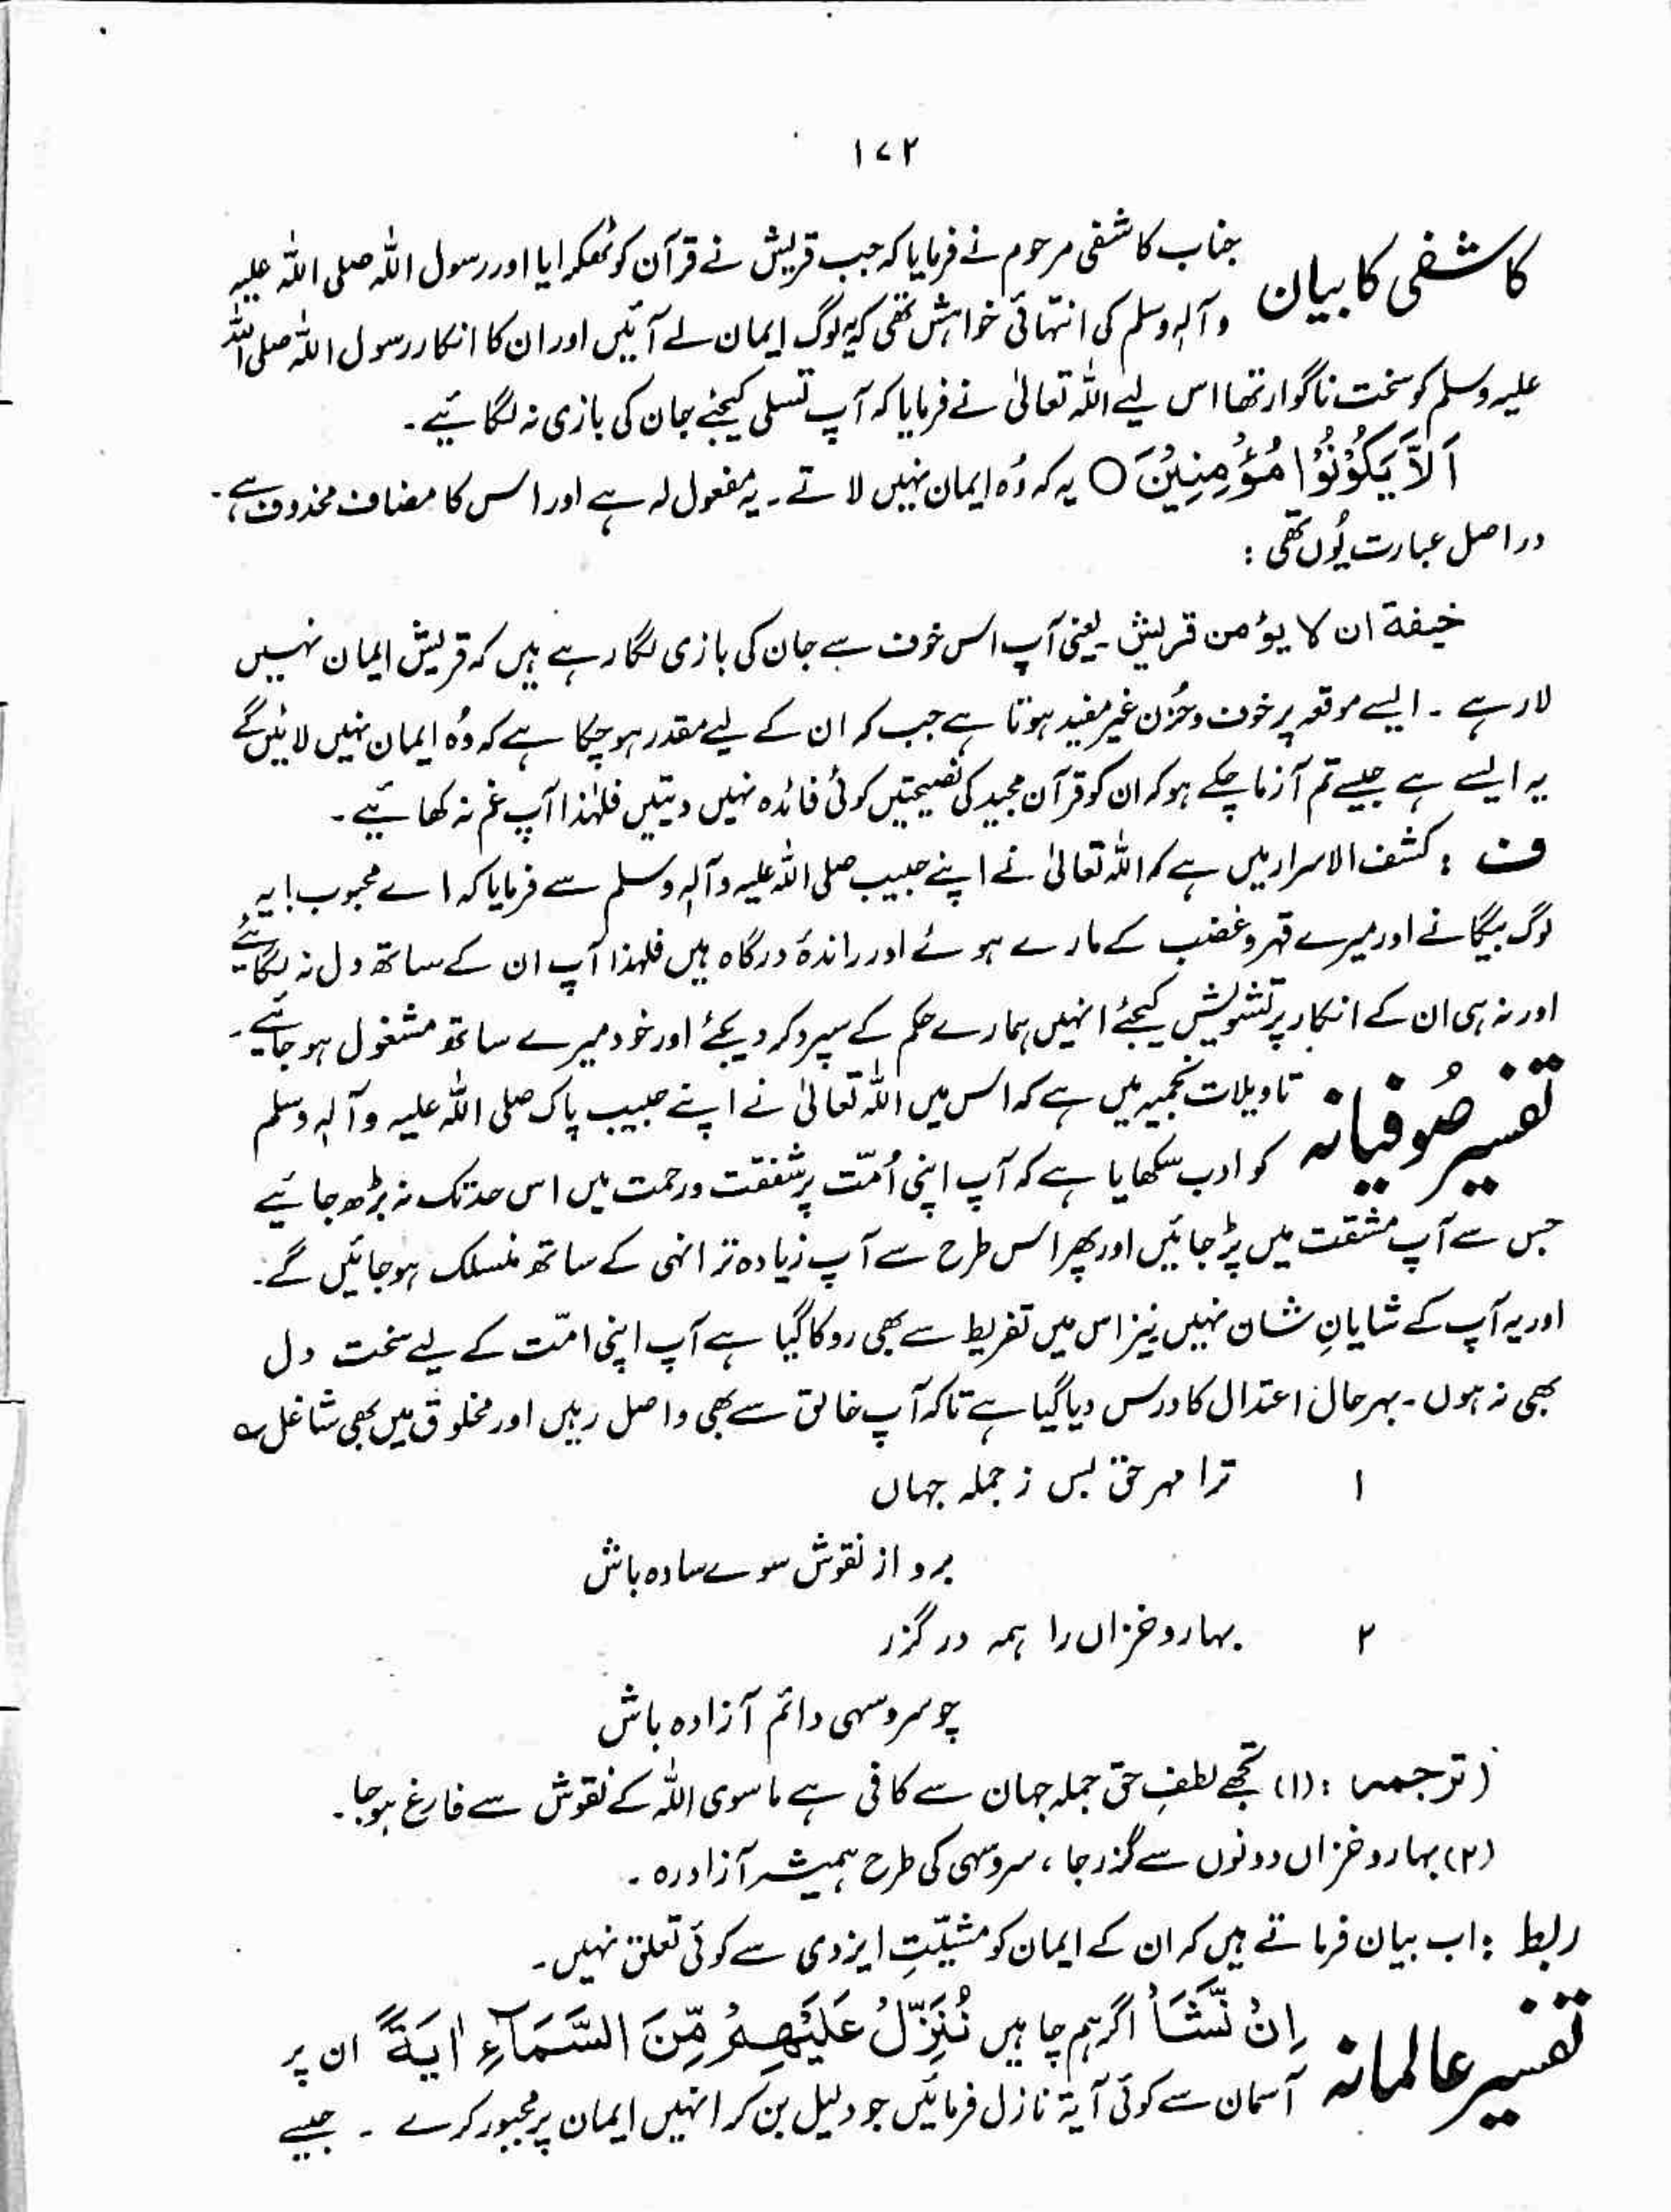 ۱۷۲
کاشفی کا بیان
جناب کاشفی مرحوم نے فرمایا کہ جب قریش نے قرآن کو ٹھکرایا اور رسول اللہ صلی اللہ علیہ
وآلہٖ وسلم کی انتہائی خواہش تھی کہ یہ لوگ ایمان لے آئیں اور ان کا انکار رسول اللہ صلی اللہ
علیہ وسلم کو سخت ناگوار تھا اس لیے اللہ تعالیٰ نے فرمایا کہ آپ تسلی کیجئے جان کی بازی نہ لگائیے۔
اَلَّا یَکُوْنُوْا مُؤْمِنِیْنَ ○ یہ کہ وُہ ایمان نہیں لاتے۔ یہ مفعول لہ ہے اور اس کا مضاف محذوف ہے۔
دراصل عبارت یُوں تھی :
خیفۃ ان لا یؤمن قریش یعنی آپ اس خوف سے جان کی بازی لگا رہے ہیں کہ قریش ایمان نہیں
لا رہے ۔ ایسے موقعہ پر خوف وحُزن غیر مفید ہوتا ہے جب کہ ان کے لیے مقدر ہو چکا ہے کہ وُہ ایمان نہیں لائیں گے
یہ ایسے ہے جیسے تم آزما چکے ہو کہ ان کو قرآن مجید کی نصیحتیں کوئی فائدہ نہیں دیتیں فلہٰذا آپ غم نہ کھائیے۔
ف : کشف الاسرار میں ہے کہ اللہ تعالیٰ نے اپنے حبیب صلی اللہ علیہ وآلہٖ وسلم سے فرمایا کہ اے محبوب! یہ
لوگ بیگانے اور میرے قہر و غضب کے مارے ہوئے اور راندۂ درگاہ ہیں فلہذا آپ ان کے ساتھ دل نہ لگائیے
اور نہ ہی ان کے انکار پر تشویش کیجئے انہیں ہمارے حکم کے سپرد کر دیجئے اور خود میرے ساتھ مشغول ہو جائیے۔
تفسیر صُوفیانہ
تاویلات نجمیہ میں ہے کہ اس میں اللہ تعالیٰ نے اپنے حبیب پاک صلی اللہ علیہ وآلہٖ وسلم
کو ادب سکھایا ہے کہ آپ اپنی اُمّت پر شفقت و رحمت میں اس حد تک نہ بڑھ جائیے
جس سے آپ مشقت میں پڑ جائیں اور پھر اس طرح سے آپ زیادہ تر انہی کے ساتھ منسلک ہو جائیں گے۔
اور یہ آپ کے شایانِ شان نہیں نیز اس میں تفریط سے بھی روکا گیا ہے آپ اپنی امّت کے لیے سخت دل
بھی نہ ہوں ۔ بہرحال اعتدال کا درس دیا گیا ہے تاکہ آپ خالق سے بھی واصل رہیں اور مخلوق میں بھی شاغل ؎
۱ ترا مہر حق بس ز جملہ جہاں
برو از نقوش سوے سادہ باش
۲ بہار و خزاں را ہمہ در گزر
چو سرو سہی دائم آزادہ باش
(ترجمہ : (۱) تجھے لطفِ حق جملہ جہان سے کافی ہے ماسوی اللہ کے نقوش سے فارغ ہو جا۔
(۲) بہار و خزاں دونوں سے گزر جا ، سرو سہی کی طرح ہمیشہ آزاد رہ ۔
ربط : اب بیان فرماتے ہیں کہ ان کے ایمان کو مشیّتِ ایزدی سے کوئی تعلق نہیں۔
تفسیر عالمانہ
اِنْ نَّشَاْ اگر ہم چاہیں نُنَزِّلْ عَلَیْھِمْ مِّنَ السَّمَآءِ اٰیَۃً ان پر
آسمان سے کوئی آیۃ نازل فرمائیں جو دلیل بن کر انہیں ایمان پر مجبور کرے ۔ جیسے